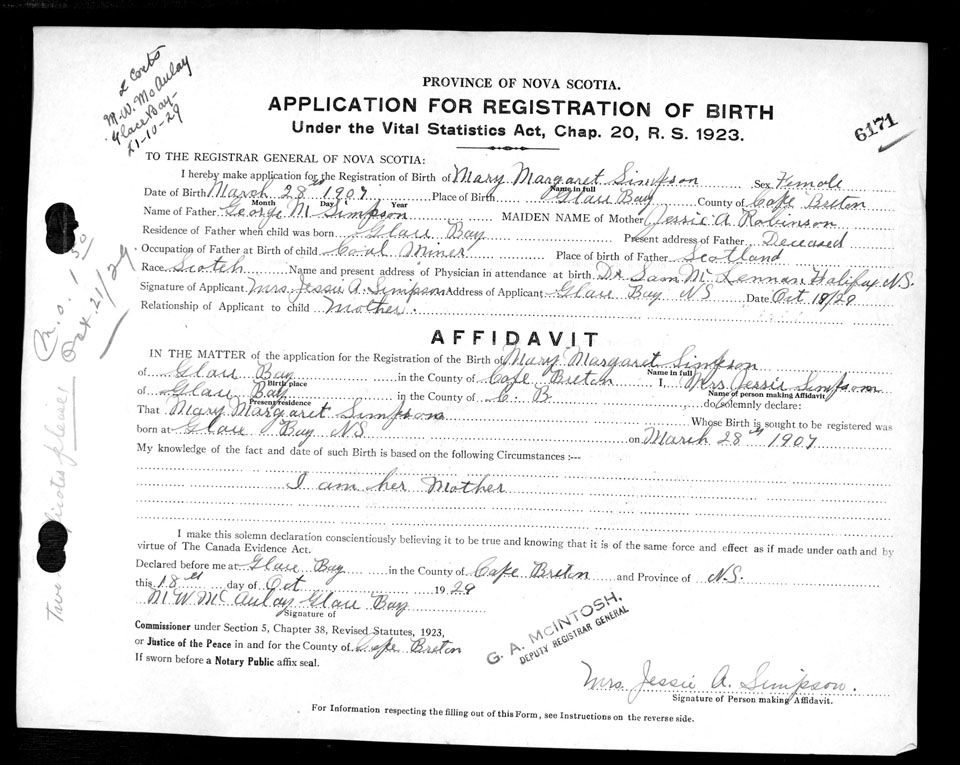 2 Certs
M. W. McAulay
Glace Bay -
21-10-29
PROVINCE OF NOVA SCOTIA.
APPLICATION FOR REGISTRATION OF BIRTH
Under the Vital Statistics Act, Chap. 20, R. S. 1923.
6171
TO THE REGISTRAR GENERAL OF NOVA SCOTIA:
I hereby make application for the Registration of Birth of Mary Margaret Simpson Sex Female
Name in full
Date of Birth March 28th 1907 Place of Birth Glace Bay County of Cape Breton
Month Day Year
Name of Father George M Simpson MAIDEN NAME of Mother Jessie A Robinson
Residence of Father when child was born Glace Bay Present address of Father Deceased
Occupation of Father at Birth of child Coal Miner Place of birth of Father Scotland
Race Scotch Name and present address of Physician in attendance at birth Dr Sam McLennan Halifax N.S.
Signature of Applicant Mrs. Jessie A. Simpson Address of Applicant Glace Bay NS Date Oct 18/29
Relationship of Applicant to child Mother.
AFFIDAVIT
IN THE MATTER of the application for the Registration of the Birth of Mary Margaret Simpson
Name in full
of Glace Bay in the County of Cape Breton I, Mrs Jessie Simpson
Birth place Name of person making Affidavit
of Glace Bay in the County of C. B do solemnly declare:
Present residence
That Mary Margaret Simpson Whose Birth is sought to be registered was
born at Glace Bay NS on March 28th 1907
My knowledge of the fact and date of such Birth is based on the following Circumstances :--
I am her Mother
I make this solemn declaration conscientiously believing it to be true and knowing that it is of the same force and effect as if made under oath and by
virtue of The Canada Evidence Act.
Declared before me at Glace Bay in the County of Cape Breton and Province of N.S.
this 18th day of Oct 1929
M W McAulay Glace Bay
Signature of
Commissioner under Section 5, Chapter 38, Revised Statutes, 1923,
or Justice of the Peace in and for the County of Cape Breton
If sworn before a Notary Public affix seal.
G. A. McINTOSH,
DEPUTY REGISTRAR GENERAL
Mrs. Jessie A. Simpson.
Signature of Person making Affidavit.
For Information respecting the filling out of this Form, see Instructions on the reverse side.
Oct. 21/29
Two please!